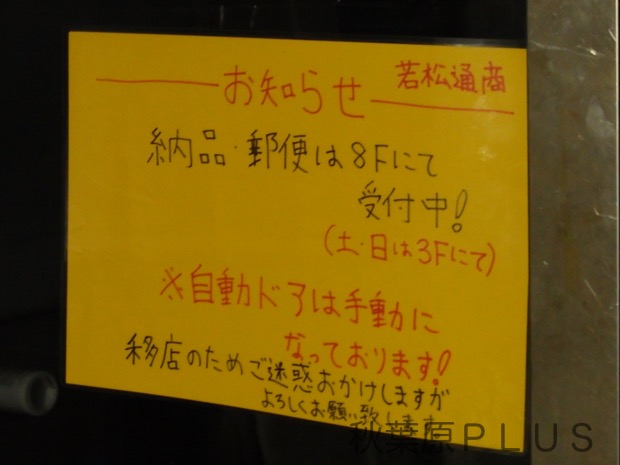 お知らせ 若松通商
納品・郵便は8Fにて
受付中!
(土・日は3Fにて)
※自動ドアは手動に
なっております!
移店のためご迷惑おかけしますが
よろしくお願い致します
秋葉原PLUS